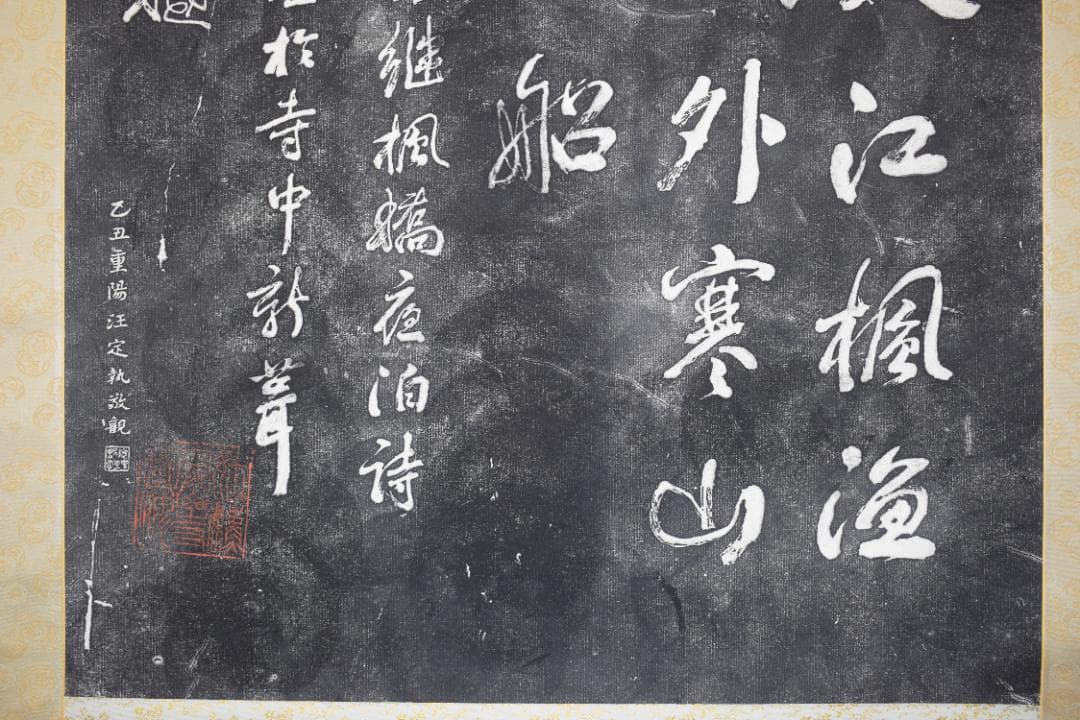 江楓漁
外寒山
船
繼楓橋夜泊詩
於寺中新葺
乙丑重陽汪定執敬觀